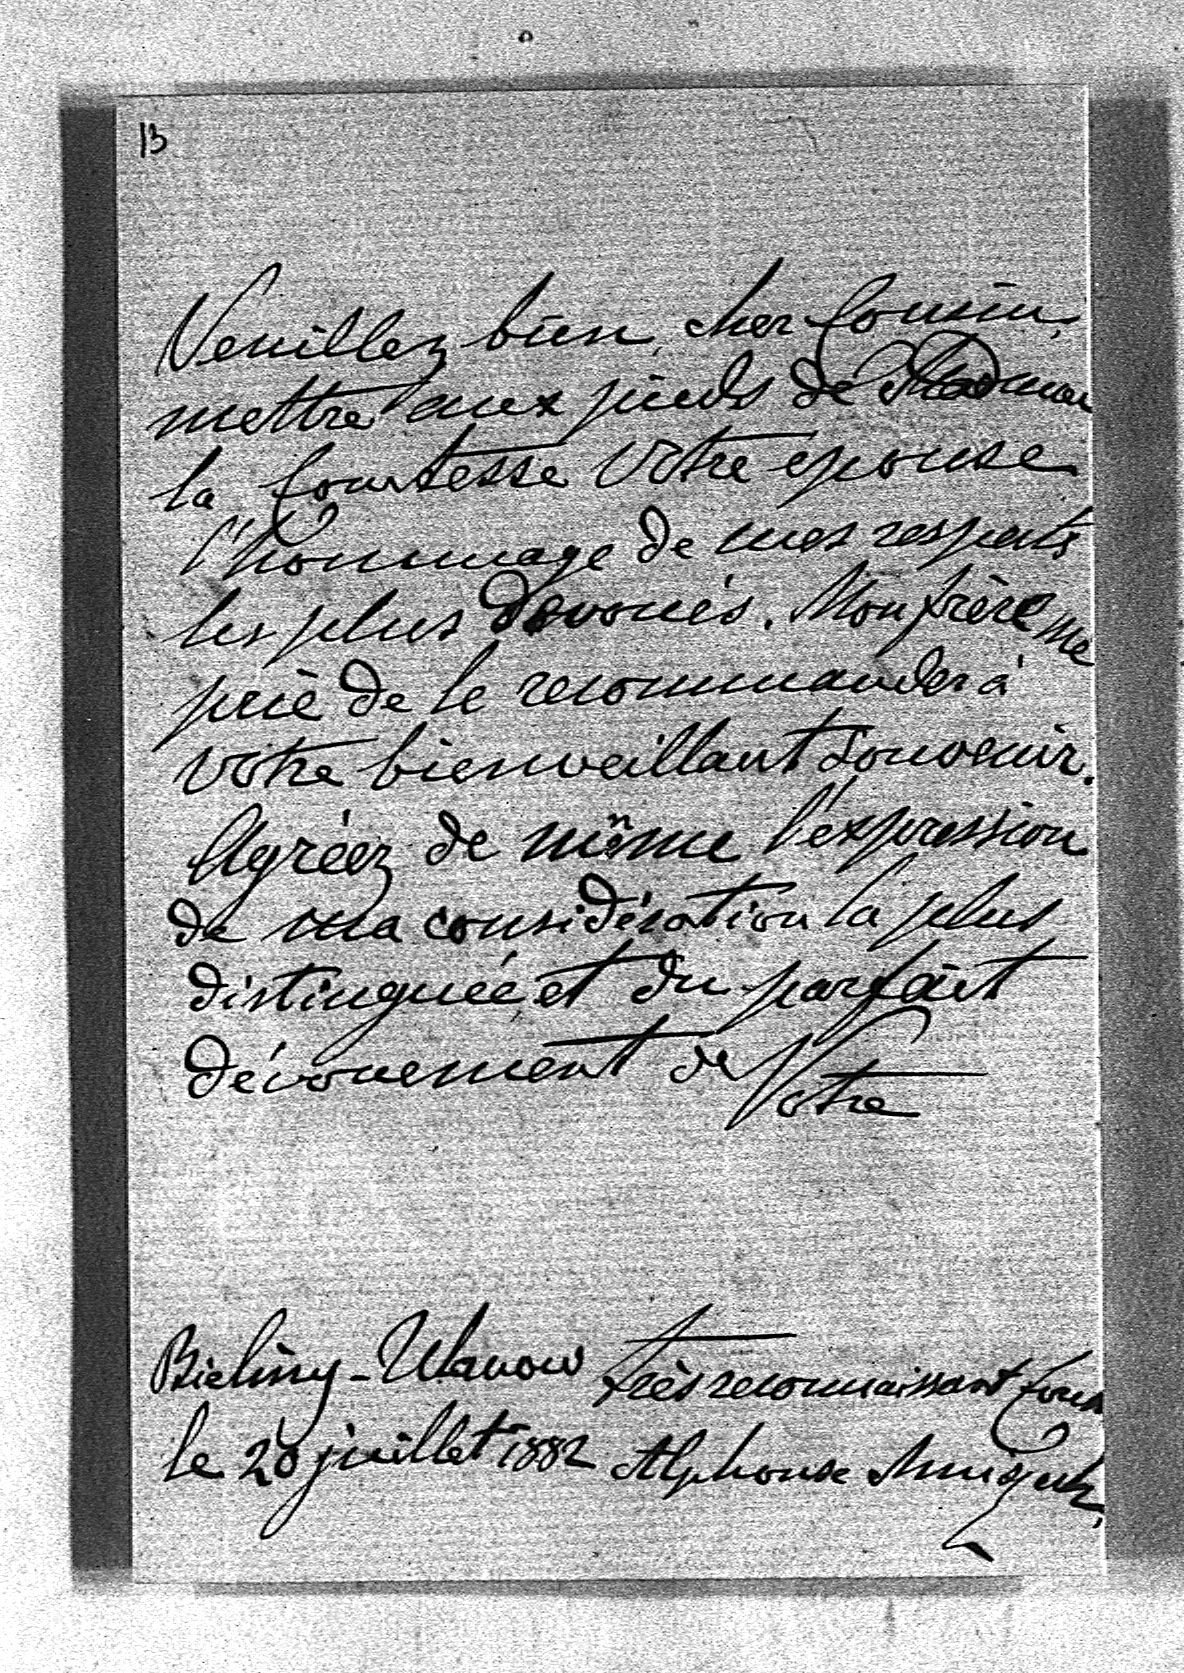 13
Veuillez bien, cher Cousin,
mettre aux pieds de Madame
la Comtesse Votre epouse
l'hommage de mes respects
les plus dévoués. Mon frère me
prie de le recommander à
votre bienveillant souvenir.
Agréez de même l'expression
de ma considération la plus
distinguée, et du parfait
dévouement de Votre
très reconnaissant Cousin
Bieliny-Ulanow
le 20 juillet 1882 Alphonse